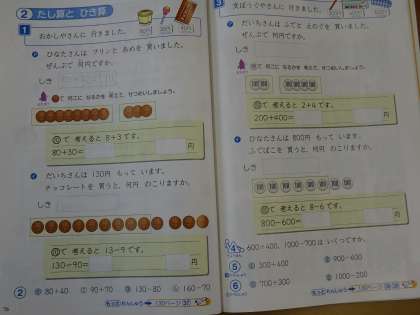 2 たし算と ひき算
1 おかしやさんに 行きました。
ひなたさんは プリンと あめを 買いました。
ぜんぶで 何円ですか。
しき
で 何こに なるかを 考えて、せつめいしましょう。
⑩で 考えると 8+3です。
80+30= 円
だいちさんは 130円 もって います。
チョコレートを 買うと、何円 のこりますか。
しき
⑩で 考えると 13-9です。
130-90= 円
② 80+40 90+70 130-80 160-70
3 文ぼうぐやさんに 行きました。
だいちさんは ふでと えのぐを 買いました。
ぜんぶで 何円ですか。
しき
で 何こに なるかを 考えて、せつめいしましょう。
で 考えると 2+4です。
200+400= 円
ひなたさんは 800円 もって います。
ふでばこを 買うと、何円 のこりますか。
しき
で 考えると 8-6です。
800-600= 円
4 600+400、1000-700は いくつですか。
⑤ 300+400 900-400
⑥ 700+300 1000-200